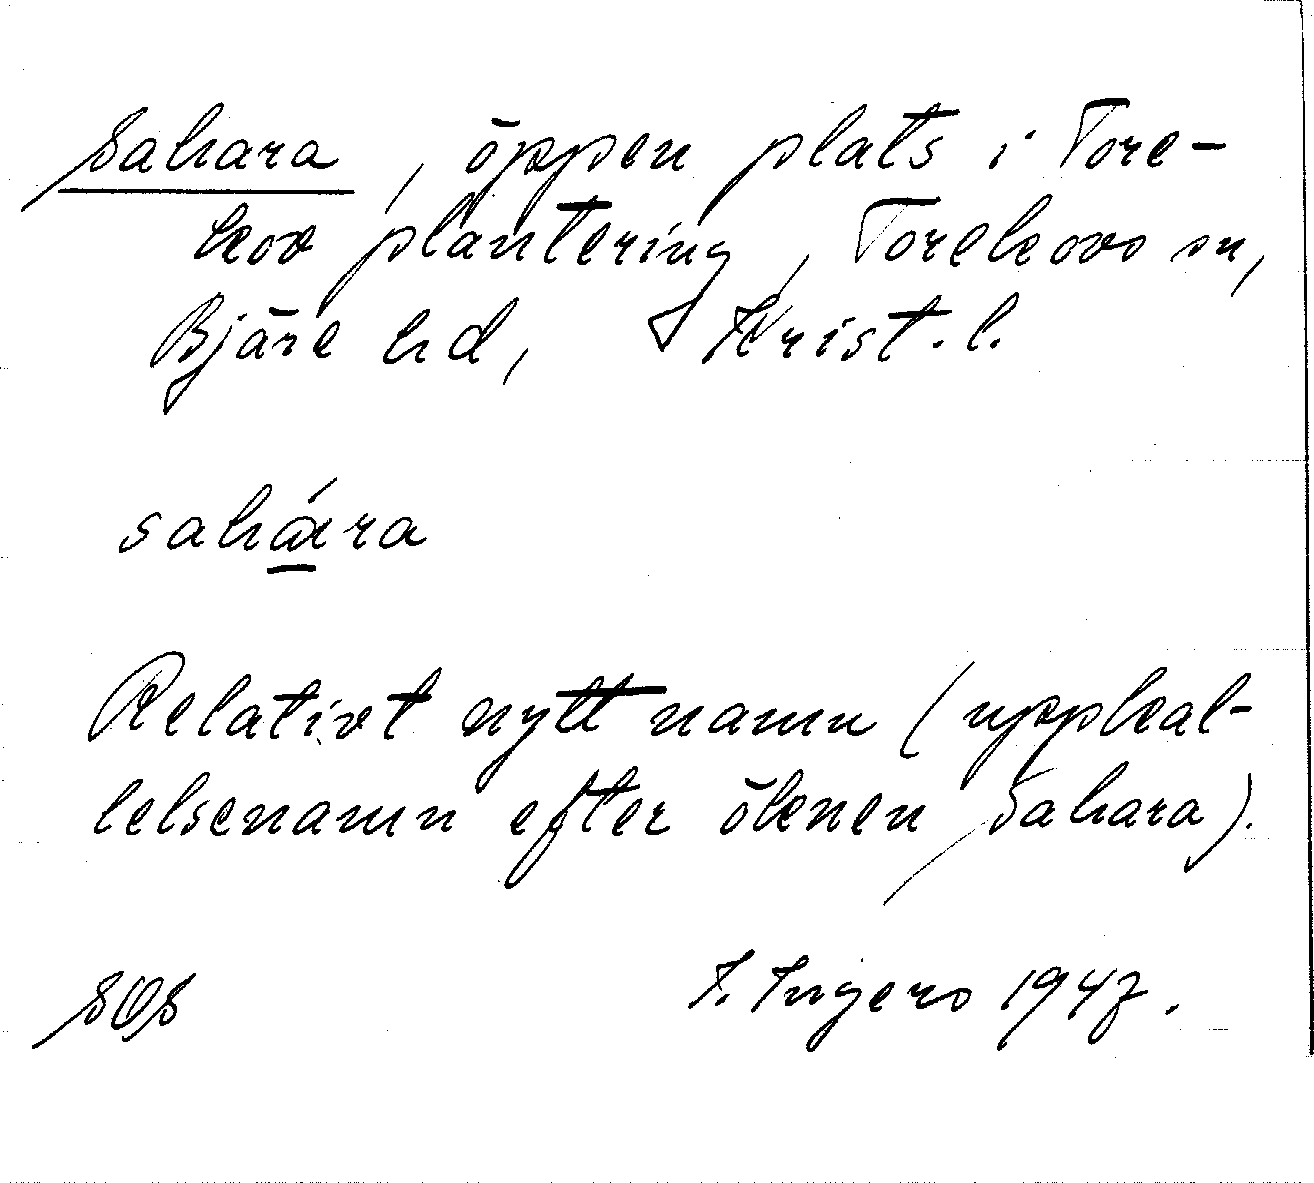 Sahara, öppen plats i Tore-
kov plantering, Torekovs sn,
Bjäre hd, Krist. l.
sahɑ́ra
Relativt nytt namn (uppkal-
lelsenamn efter öknen Sahara).
SOS I. Ingers 1947.